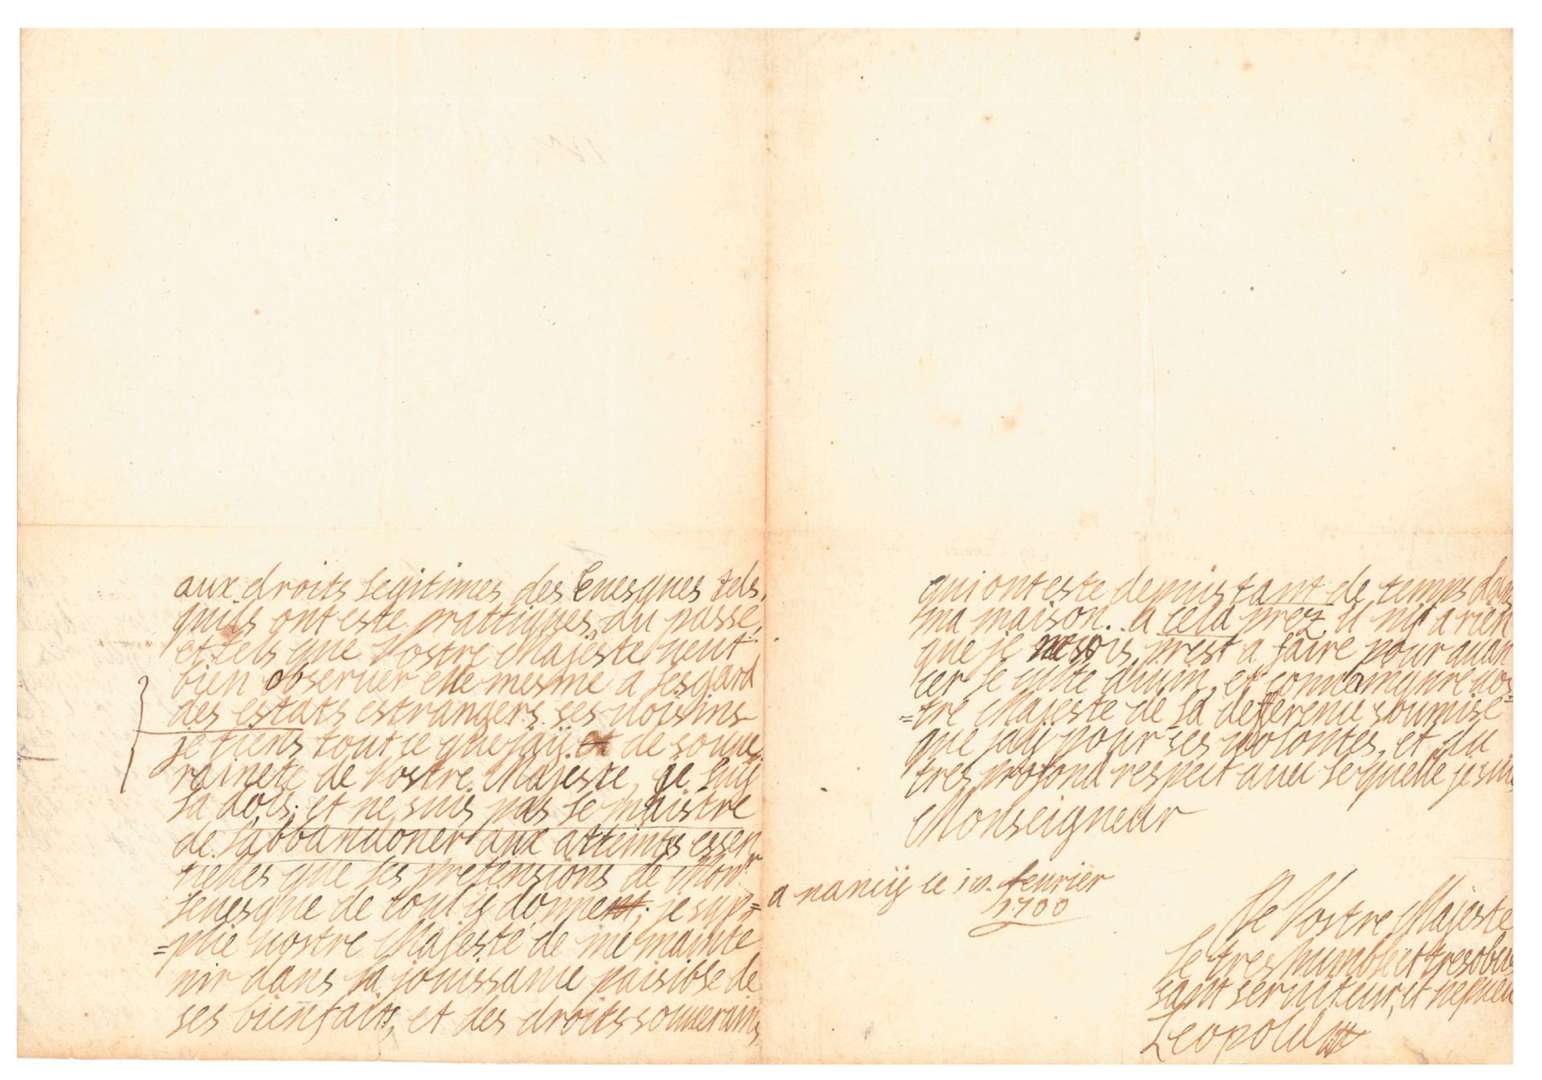 aux droits legitimes des Euesques tels,
quils ont este prattiques du passé
et tels que Vostre Majeste ueut
bien observer elle mesme a lesgard
des estats estrangers ses uoisins
je tiens tout ce que jaÿ de souue
raineté de Vostre Majeste, je luÿ
la dois, et ne suis pas le maistre
de labbandoner aux atteintes essen
tielles que les pretensions de Monr
leuesque de toul ÿ donnent, je sup=
=plie Vostre Majesté de me mainte
nir dans la jouissance paisible de
ses bienfaits, et des droits souuerains
qui ont este depuis tant de temps dans
ma maison. a cela prez il nÿ a rien
que je ne sois prest a faire pour auan
cer le culte diuin, et conuaincre uos=
=tre Majeste de la defference soumise
que jaÿ pour ses uolontes, et du
tres profond respect auec lequelle je suis
Monseigneur
a nancÿ ce feurier
1700
De Vostre Majeste
le tres humble et tres obeis
sant seruiteur, et nepueu
Leopold